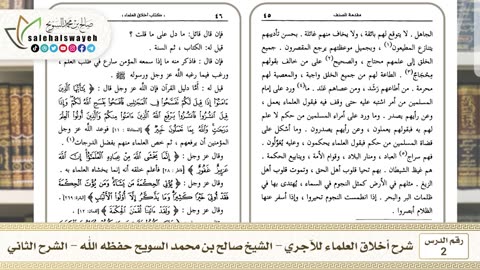 صالح بن محمد السويح
salehalswayeh
مقدمة المصنف
٤٥
الجاهل . لا يتوقع لهم بائقة ، ولا يخاف منهم غائلة . بحسن تأديبهم
يتنازع المطيعون(١) ، وبجميل موعظتهم يرجع المقصرون . جميع
الخلق إلى علمهم محتاج ، والصحيح(٢) على من خالف بقولهم
محجاج(٣) . الطاعة لهم من جميع الخلق واجبة ، والمعصية لهم
محرمة . من أطاعهم رشد ، ومن عصاهم عَنَد . ما ورد على إمام
المسلمين من أمر اشتبه عليه حتى وقف فيه فبقول العلماء يعمل ،
وعن رأيهم يصدر . وما ورد على أمراء المسلمين من حكم لا علم
لهم به فبقولهم يعملون ، وعن رأيهم يصدرون . وما أشكل على
قضاة المسلمين من حكم فبقول العلماء يحكمون ، وعليه يعوّلون .
فهم سراج العباد ، ومنار البلاد ، وقوام الأمة ، وينابيع الحكمة .
هم غيظ الشيطان . بهم تحيا قلوب أهل الحق ، وتموت قلوب أهل
الزيغ . مثلهم في الأرض كمثل النجوم في السماء ، يُهتدى بها في
ظلمات البر والبحر . إذا انطمست النجوم تحيروا ، وإذا أسفر عنها
الظلام أبصروا .
٤٦
كتاب أخلاق العلماء
فإن قال قائل: ما دل على ما قلت ؟
قيل له: الكتاب ، ثم السنة .
فإن قال: فاذكر منه ما إذا سمعه المؤمن سارع في طلب العلم ،
ورغب فيما رغبه الله عز وجل ورسوله ﷺ
قيل له : أمَّا دليل القرآن فإن الله عز وجل قال: ﴿يَا أَيُّهَا الَّذِينَ
آمَنُوا إِذَا قِيلَ لَكُمْ تَفَسَّحُوا فِي الْمَجَالِسِ فَافْسَحُوا يَفْسَحِ اللَّهُ لَكُمْ وَإِذَا قِيلَ
انشُزُوا فَانشُزُوا يَرْفَعِ اللَّهُ الَّذِينَ آمَنُوا مِنكُمْ وَالَّذِينَ أُوتُوا الْعِلْمَ
دَرَجَاتٍ وَاللَّهُ بِمَا تَعْمَلُونَ خَبِيرٌ﴾ فوعد الله عز وجل
المؤمنين أن يرفعهم ، ثم خص العلماء منهم بفضل الدرجات(١) .
وقال عز وجل : ﴿إِنَّمَا يَخْشَى اللَّهَ مِنْ عِبَادِهِ الْعُلَمَاءُ إِنَّ اللَّهَ
عَزِيزٌ غَفُورٌ﴾ فأعلم خلقه أنه إنما يخشاه العلماء به .
وقال عز وجل : ﴿يُؤْتِي الْحِكْمَةَ مَن يَشَاءُ وَمَن يُؤْتَ الْحِكْمَةَ
فَقَدْ أُوتِيَ خَيْرًا كَثِيرًا وَمَا يَذَّكَّرُ إِلَّا أُولُو الْأَلْبَابِ﴾
شرح أخلاق العلماء للآجري – الشيخ صالح بن محمد السويح حفظه الله – الشرح الثاني
رقم الدرس
2